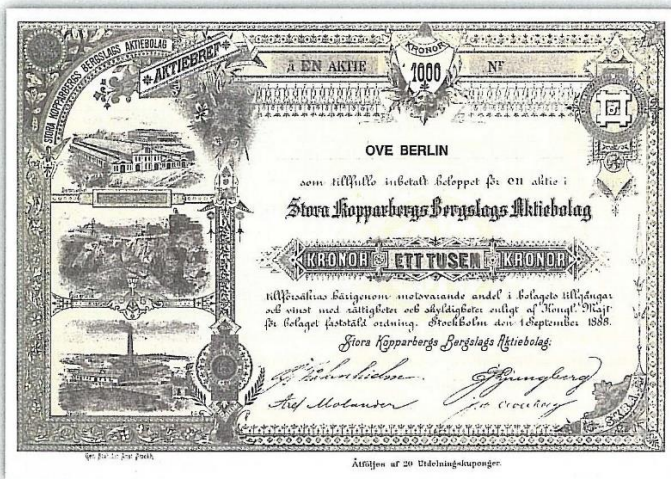 STORA KOPPARBERGS BERGSLAGS AKTIEBOLAG
AKTIEBREF
Å EN AKTIE
KRONOR
1000
Nr
OVE BERLIN
som tillfullo inbetalt beloppet för en aktie i
Stora Kopparbergs Bergslags Aktiebolag
KRONOR ETT TUSEN KRONOR
tillförsäkras härigenom motsvarande andel i bolagets tillgångar
och vinst med rättigheter och skyldigheter enligt af Kongl. Majt
för bolaget faststäld ordning. Stockholm den 1 September 1888.
Stora Kopparbergs Bergslags Aktiebolag:
EJLjungberg
Axel Molander
Gen. Stab. Lit. Anst. Stockh.
Åtföljes af 20 Utdelningskuponger.